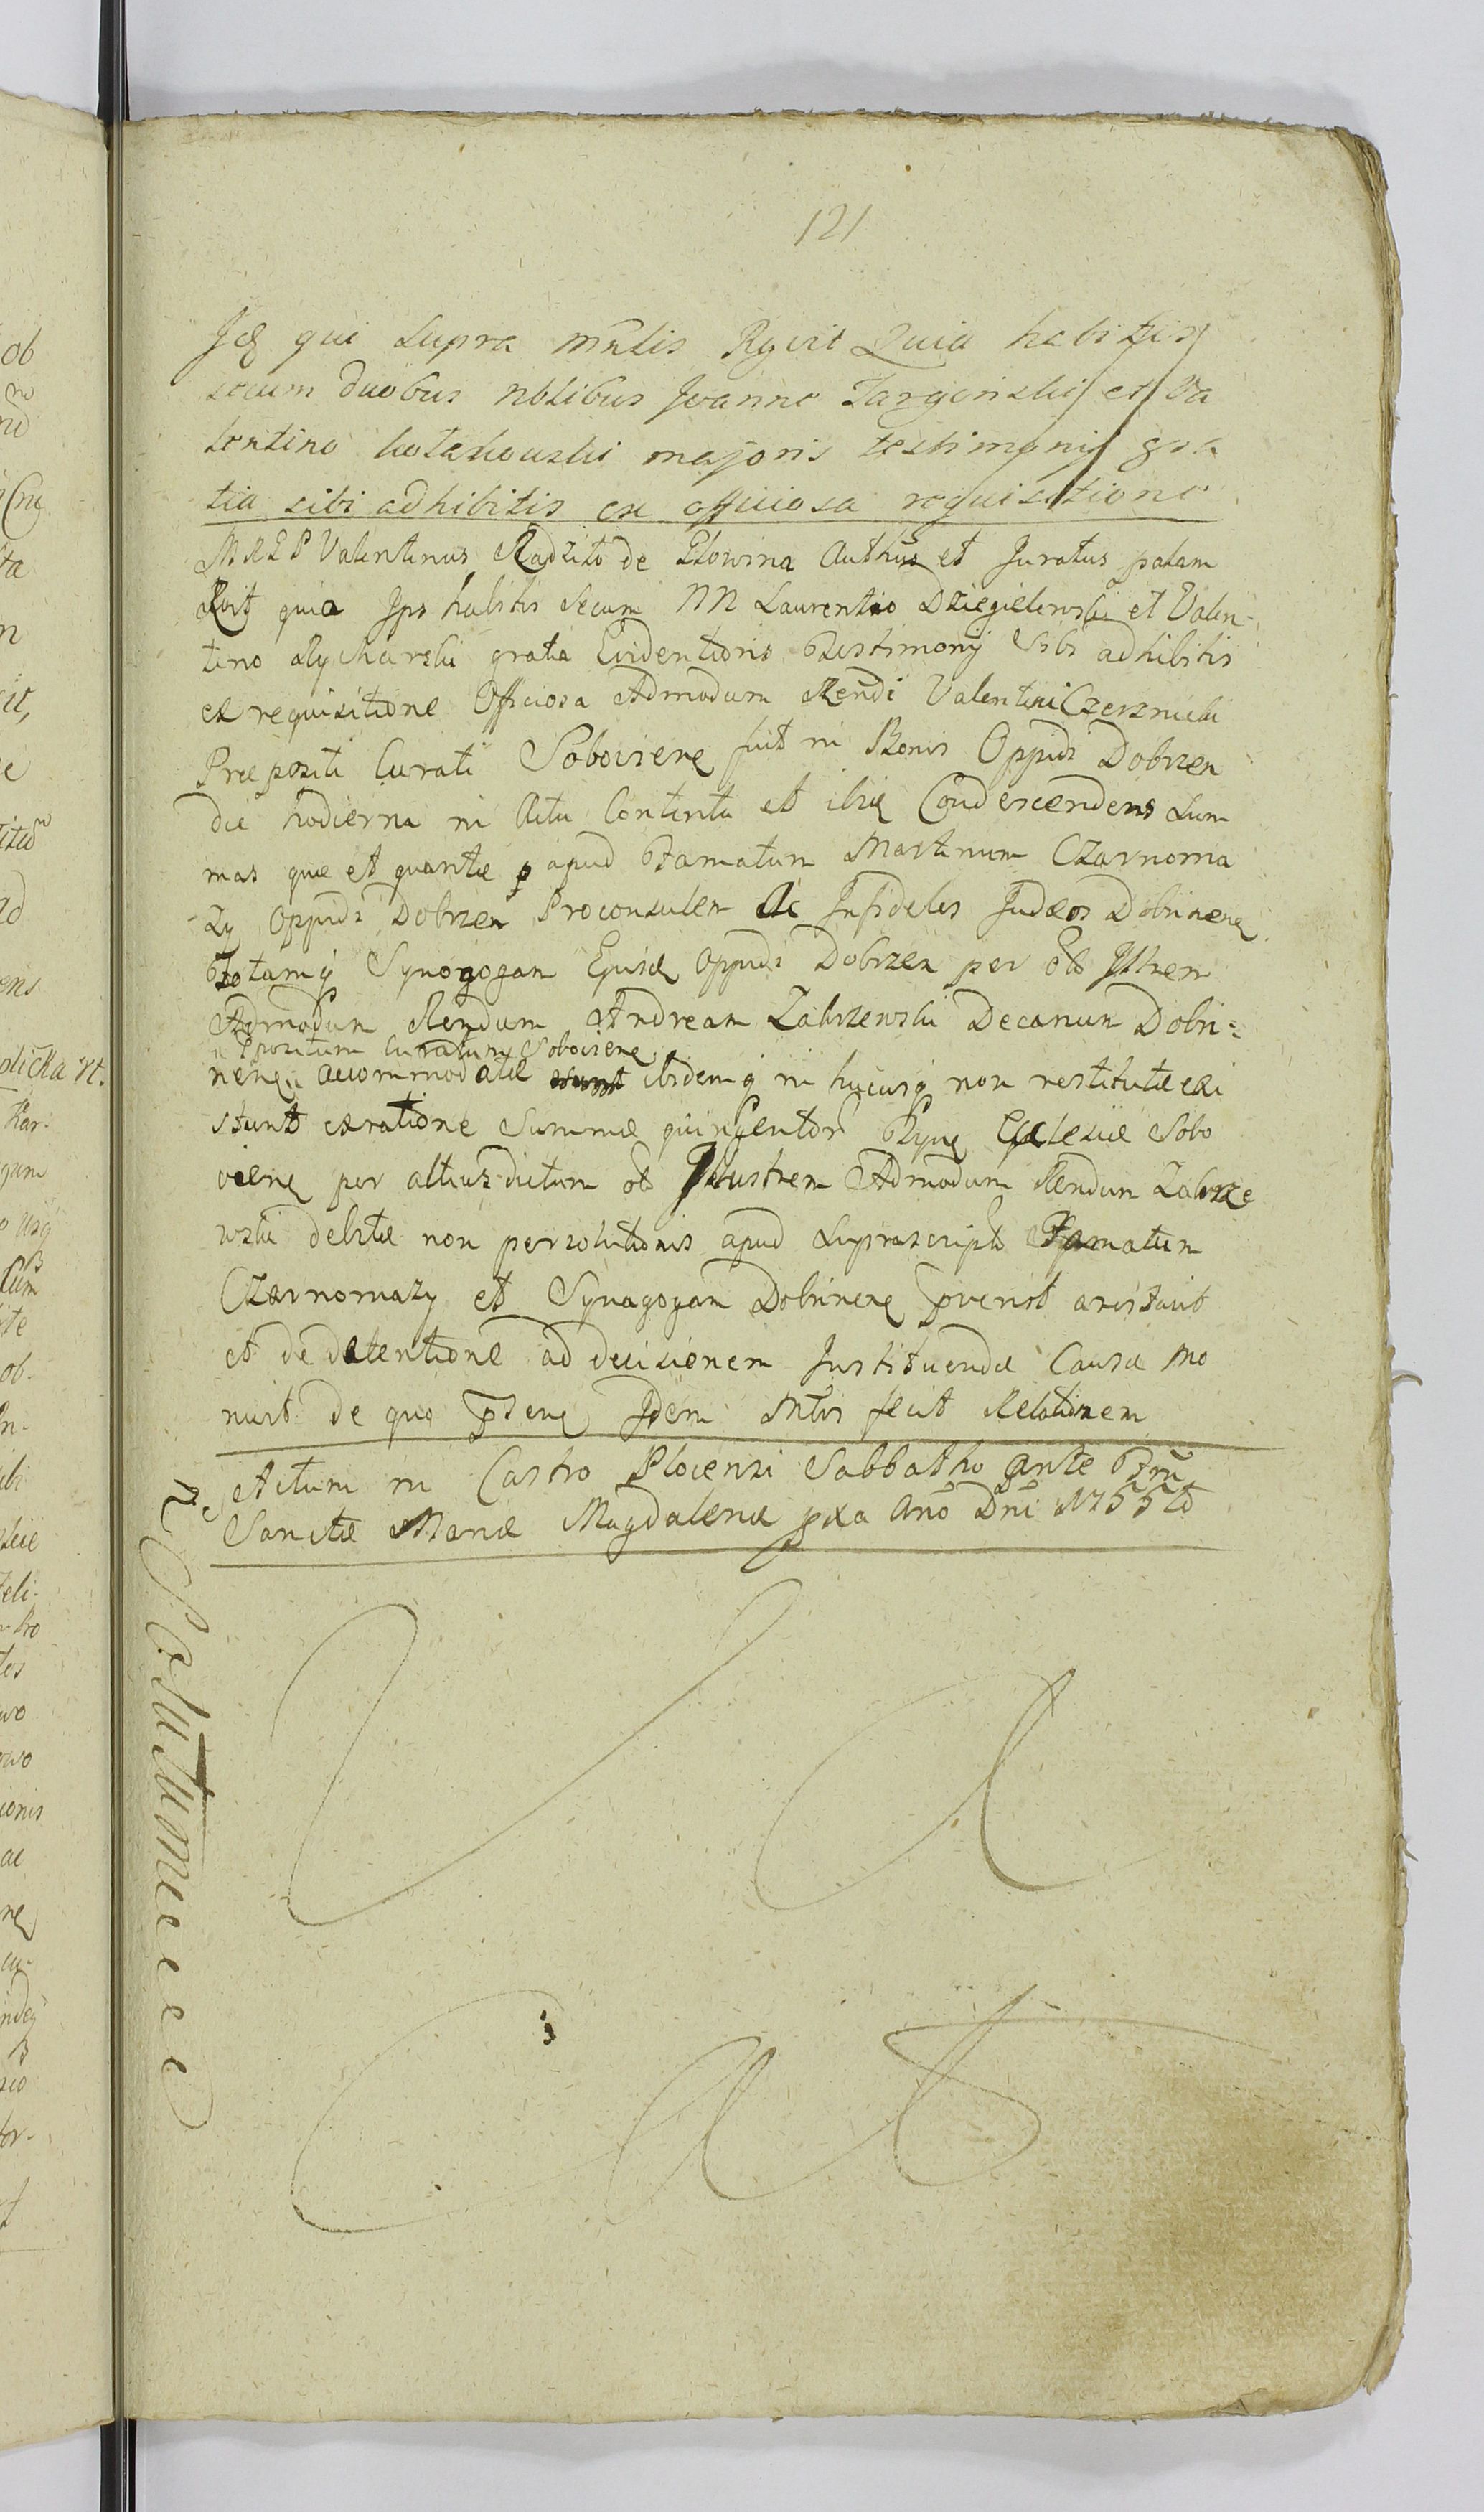 121
Idē qui supra mnlis Rgvit Quia habitis
secum duobus nblibus Joanne Targonski et Va
lentino kotakowski majoris testimonij gra
tia sibi adhibitis ex officiosa requisitione
MRGP Valentinus Radzito de Plowina Authūs et Juratus palam
Rvit quia Ips habitis Secum NN Laurentio Dziegielewski et Valen-
tino Rycharski gratia Evidentioris Testimonij Sibi adhibitis
ex requisitione Officiosa Admodum Rendi Valentini Czerznicki
Præpositi Curati Soboviene fuit in Bonis Oppidi Dobrzen
die hodierna in Actu Contenta et ibiq Condescendens sum
mas quæ et quantæ apud Famatum Martinum Czarnoma
zy Oppidi Dobrzen Proconsulem Ac Infideles Judæos Dobrinene
Totamq Synogogam Ejusd Oppidi Dobrzen per olb Illtrem
Admodum Rendum Andream Zakrzewski Decanum Dobri-
Ppositum Curatum Soboviene
nene accommodatæ ibidemq in hucusq non restitutæ exi
stunt ex ratione Summæ quingentor Ecclesiæ Sobo
viene per altius dictum olb Illustrem Admodum Rendum Zakrze
wski debitæ non persolutionis apud Suprascript Famatum
Czarnomazy et Synagogam Dobrinene pvenit arestavit
et de detentione ad decisionem Instituendæ Causæ mo
nuit de quo Idem Mtlis fecit Relationem
Actum in Castro Plocensi Sabbatho ante Ftm
Sanctæ Mariæ Magdalenæ pxa Ano Dni 1755to